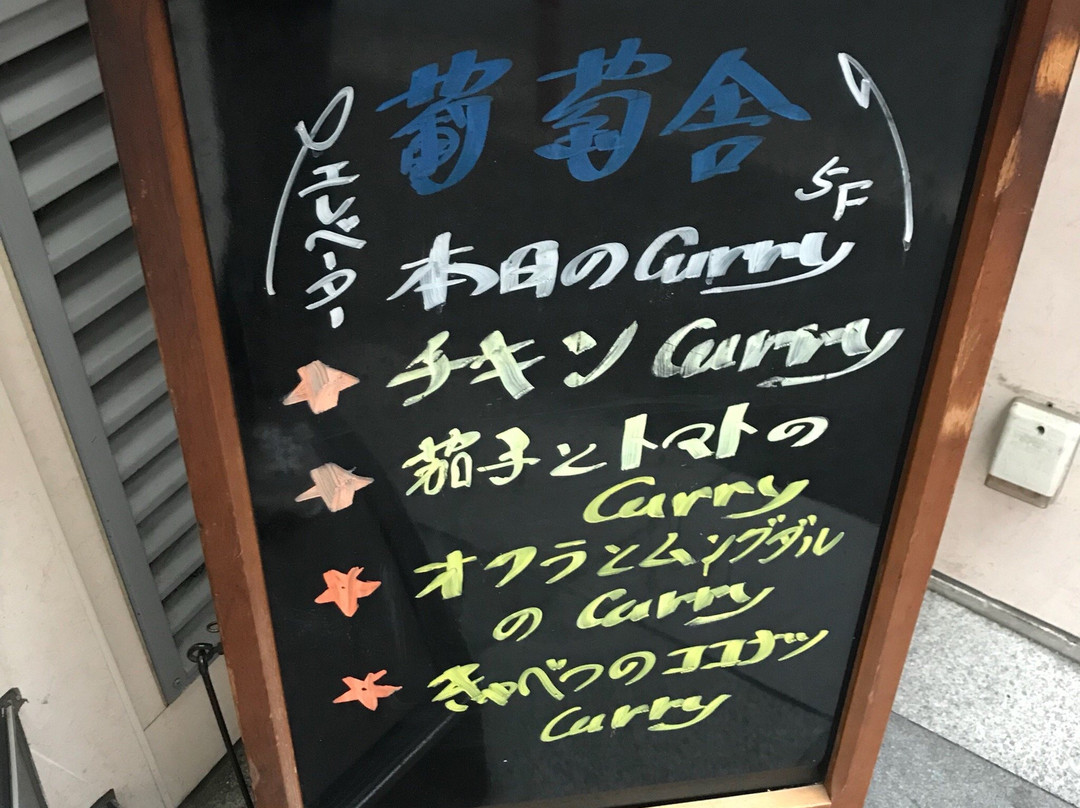 葡萄舎
エレベーター
5F
本日のCurry
チキンCurry
茄子とトマトの
Curry
オクラとムングダル
のCurry
きゃべつのココナツ
Curry